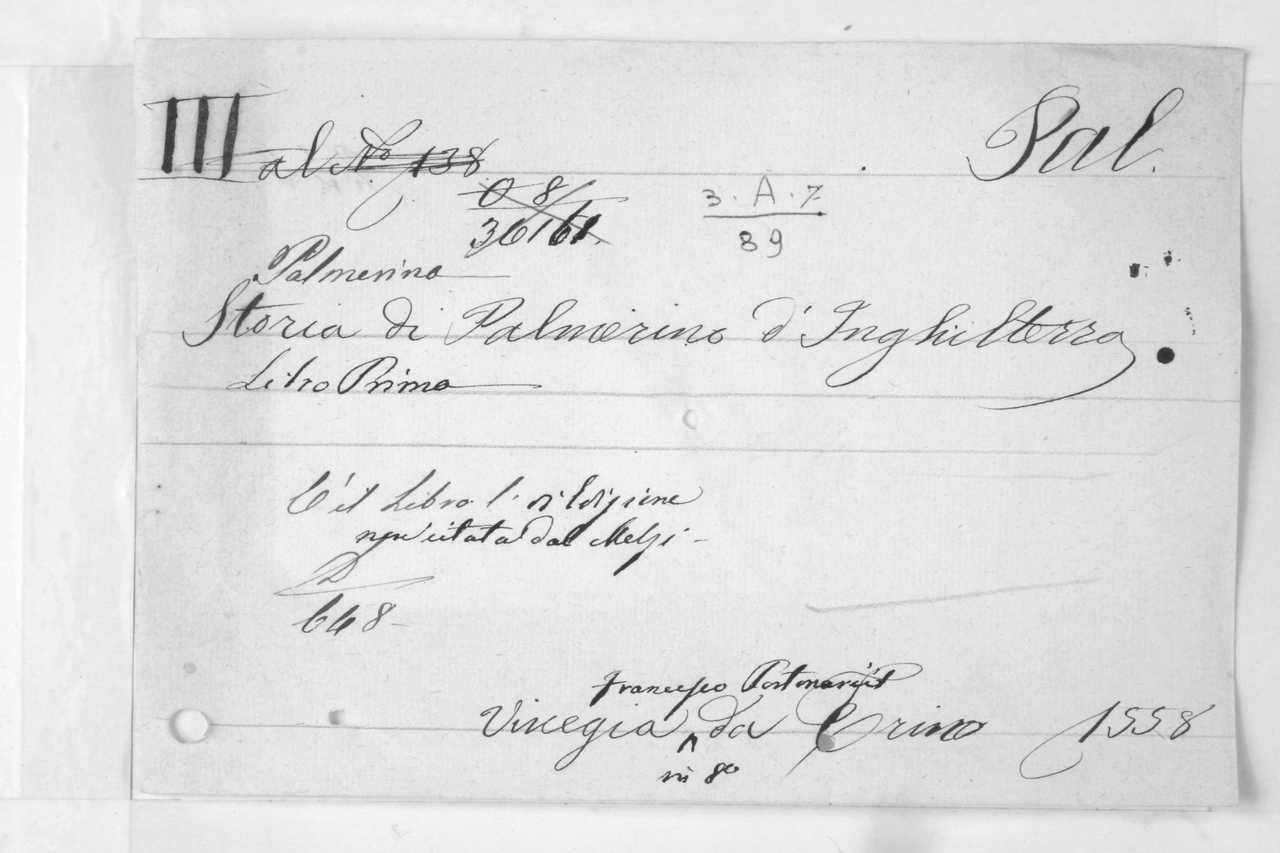 III al No 138 Pal.
O 8/
36161.
3·A·7
89
Palmerino
Storia di Palmerino d'Inghilterra
Libro Primo
C'è il Libro 1. di Edizione
non citata dal Melzi -
D
648 -
Francesco Portonariis
Vinegia da Trino 1558
in 8o